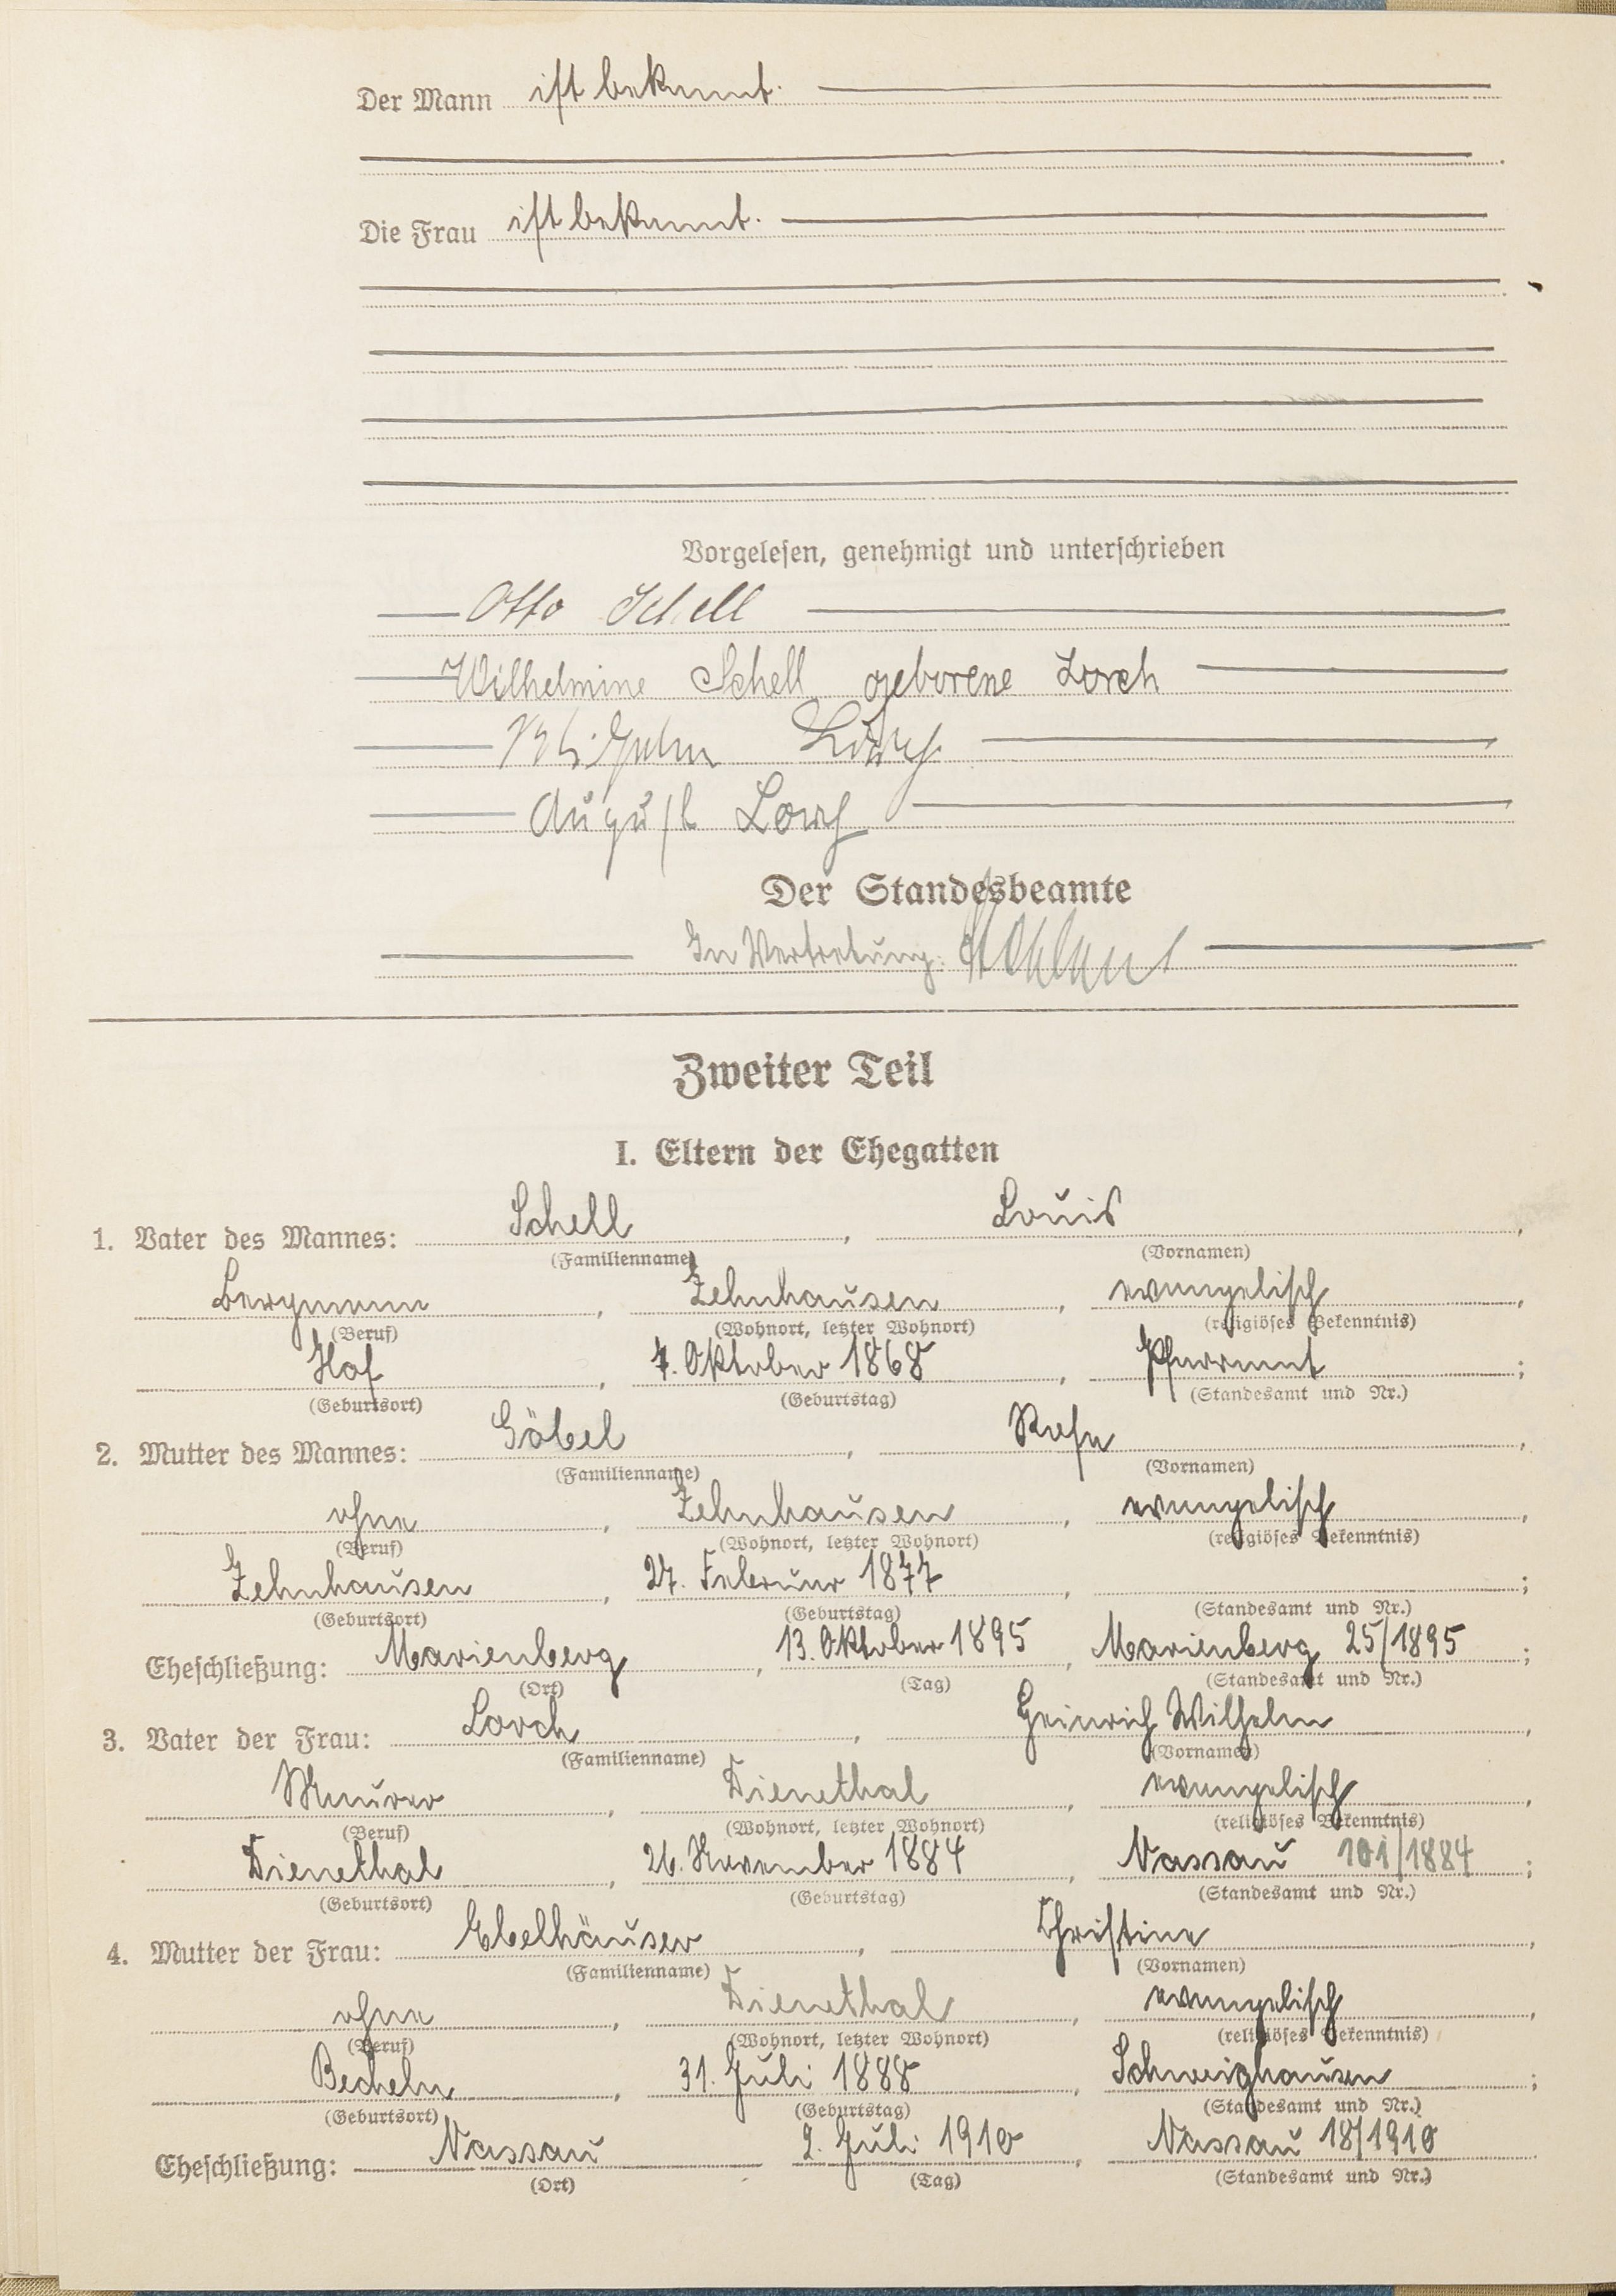 Der Mann ist bekannt.
Die Frau ist bekannt.
Vorgelesen, genehmigt und unterschrieben
Otto Schell
Wilhelmine Schell geborene Lorch
Wilhelm Lorch
August Lorch
Der Standesbeamte
In Vertretung:
Zweiter Teil
I. Eltern der Ehegatten
1. Vater des Mannes: Schell, Louis,
(Familienname) (Vornamen)
Bergmann, Zehnhausen, evangelisch,
(Beruf) (Wohnort, letzter Wohnort) (religiöses Bekenntnis)
Hof, 7. Oktober 1868, Pfarramt;
(Geburtsort) (Geburtstag) (Standesamt und Nr.)
2. Mutter des Mannes: Göbel, Rosa,
(Familienname) (Vornamen)
ohne, Zehnhausen, evangelisch,
(Beruf) (Wohnort, letzter Wohnort) (religiöses Bekenntnis)
Zehnhausen, 27. Februar 1877,;
(Geburtsort) (Geburtstag) (Standesamt und Nr.)
Eheschließung: Marienberg, 13. Oktober 1895, Marienberg 25/1895;
(Ort) (Tag) (Standesamt und Nr.)
3. Vater der Frau: Lorch, Heinrich Wilhelm,
(Familienname) (Vornamen)
Maurer, Dienethal, evangelisch,
(Beruf) (Wohnort, letzter Wohnort) (religiöses Bekenntnis)
Dienethal, 26. November 1884, Nassau 101/1884;
(Geburtsort) (Geburtstag) (Standesamt und Nr.)
4. Mutter der Frau: Ebelhäuser, Christine,
(Familienname) (Vornamen)
ohne, Dienethal, evangelisch,
(Beruf) (Wohnort, letzter Wohnort) (religiöses Bekenntnis)
Becheln, 31. Juli 1888, Schweighausen;
(Geburtsort) (Geburtstag) (Standesamt und Nr.)
Eheschließung: Nassau 2. Juli 1910, Nassau 18/1910
(Ort) (Tag) (Standesamt und Nr.)